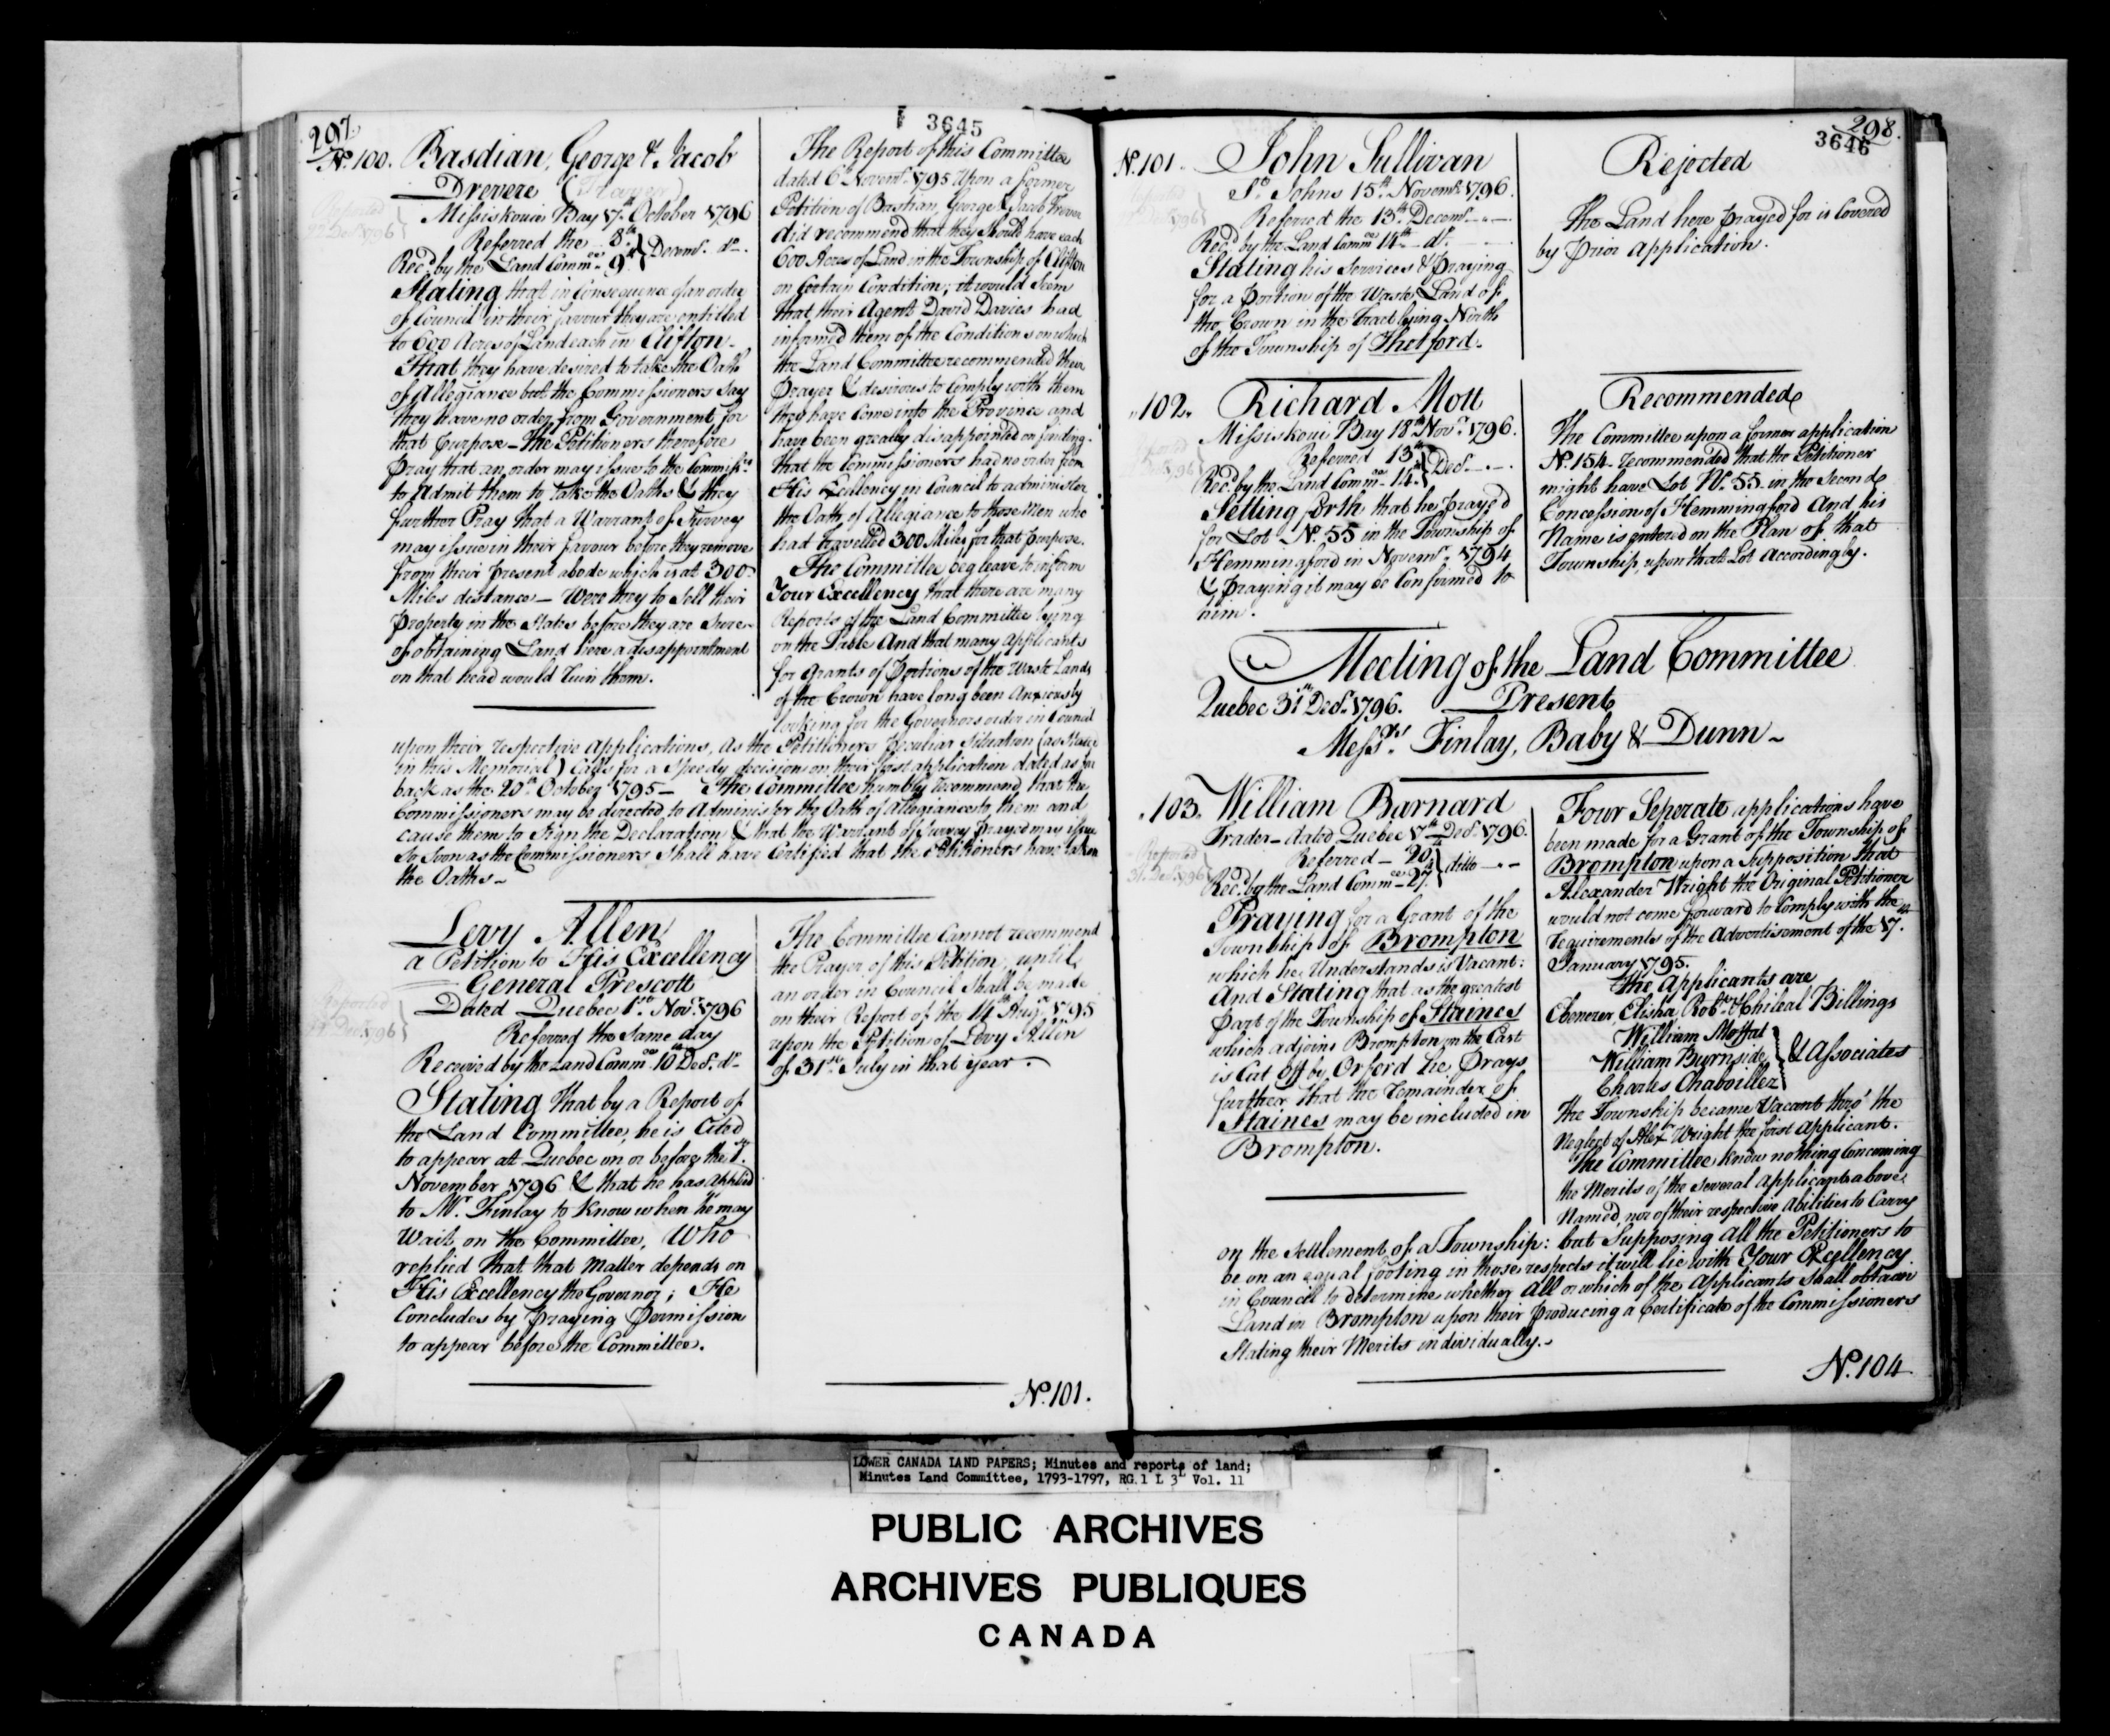 297.
3645
No. 100. Basdian, George & Jacob
Drevere
Missiskoui Bay 17th October 1796
Referred the 8th
Recd. by the Land Commee 9th } Decemr. do.
Stating that in Consequence of an order
of Council in their favour they are entitled
to 600 Acres of Land each in Clifton.
That they have desired to take the Oath
of Allegiance but the Commissioners Say
they have no order from Government for
that purpose – The Petitioners therefore
Pray that an order may issue to the Commissrs
to Admit them to take the Oaths & they
further Pray that a Warrant of Survey
may issue in their favour before they remove
from their present abode which is at 300
Miles distance – Were they to Sell their
property in the States before they are Sure
of obtaining Land here a disappointment
on that head would Ruin them.
The Report of this Committee
dated 6th Novemr. 1795 Upon a former
Petition of Bastian, George & Jacob
did recommend that they Should have each
600 Acres of Land in the Township of Clifton
on Certain Condition; it would Seem
that their Agent David Davies had
informed them of the Conditions on which
the Land Committee recommended their
Prayer & desirous to Comply with them
they have Come into the Province and
have been greatly disappointed on finding
that the Commissioners had no order from
His Excellency in Council to administer
the Oath of Allegiance to those Men who
had travelled 300 Miles for that purpose.
The Committee beg leave to inform
Your Excellency that there are many
Reports of the Land Committee lying
on the Table And that many applicants
for Grants of Portions of the Waste Lands
of the Crown have long been Anxiously
looking for the Governors order in Council
upon their respective applications, as the Petitioners peculiar Situation (as
in this Memorial) Calls for a Speedy decision on their first application dated as far
back as the 20th October 1795 – The Committee humbly recommend that the
Commissioners may be directed to Administer the Oath of Allegiance to them and
cause them to Sign the Declaration & that the Warrant of Survey Prayed may issue
So Soon as the Commissioners Shall have Certified that the Petitioners have taken
the Oaths –
Levy Allen
a Petition to His Excellency
General Prescott
Dated Quebec 1st Novr. 1796
Referred the Same day
Received by the Land Commee 10th Decr. do
Stating That by a Report of
the Land Committee, he is Cited
to appear at Quebec on or before the 1st.
November 1796 & that he has applied
to Mr. Finlay to Know when he may
Wait on the Committee, Who
replied that that Matter depends on
His Excellency the Governor; He
Concludes by Praying Permission
to appear before the Committee.
The Committee Cannot recommend
the Prayer of this Petition, until
an order in Council Shall be made
on their Report of the 14th Augst. 1795
upon the Petition of Levy Allen
of 31st July in that year.
No. 101.
298.
3646
No. 101. John Sullivan
St. Johns 15th Novemr. 1796.
Referred the 13th Decemr.
Recd. by the Land Commee 14th do.
Stating his Services & Praying
for a Portion of the Waste Land of
the Crown in the Tract lying North
of the Township of Thetford.
Rejected
The Land here Prayed for is Covered
by Prior Application.
102. Richard Mott
Missiskoui Bay 18th Novr. 1796.
Referred 13th
Recd. by the Land Commee 14th } Decr.
Setting forth that he Pray'd
for Lot No. 55 in the Township of
Hemmingford in Novemr. 1794
& Praying it may be Confirmed to
him.
Recommended
The Committee upon a former application
No. 154 recommended that the Petitioner
might have Lot No. 55 in the Second
Concession of Hemmingford And his
Name is entered on the Plan of that
Township, upon that Lot Accordingly.
Meeting of the Land Committee
Quebec 31st Decr. 1796. Present
Messrs. Finlay, Baby & Dunn –
103. William Barnard
Trader – dated Quebec 17th Decr. 1796.
Referred – 20th
Recd. by the Land Commee – 27th } ditto
Reported
31. Decr. 1796 }
Praying for a Grant of the
Township of Brompton
which he Understands is Vacant:
And Stating that as the greatest
part of the Township of Staines
which adjoins Brompton on the East
is Cut off by Orford he Prays
further that the Remainder of
Staines may be included in
Brompton.
Four Seperate applications have
been made for a Grant of the Township of
Brompton upon a Supposition that
Alexander Wright the Original Petitioner
would not come forward to Comply with the
requirements of the Advertisement of the 17th.
January 1795.
The Applicants are
Ebenezer, Elisha, Robt. & Billings
William Moffat
William Burnside
Charles Chaboillez } & Associates
The Township became Vacant thro' the
Neglect of Alexr. Wright the first Applicant.
The Committee know nothing Concerning
the Merits of the Several Applicants above
Named, nor of their respective Abilities to Carry
on the Settlement of a Township: but Supposing All the Petitioners to
be on an equal footing in those respects it will lie with Your Excellency
in Council to determine whether All or which of the Applicants Shall obtain
Land in Brompton upon their Producing a Certificate of the Commissioners
Stating their Merits individually. –
No. 104
LOWER CANADA LAND PAPERS; Minutes and reports of land;
Minutes Land Committee, 1793-1797, RG 1 L 3L Vol. 11
PUBLIC ARCHIVES
ARCHIVES PUBLIQUES
CANADA